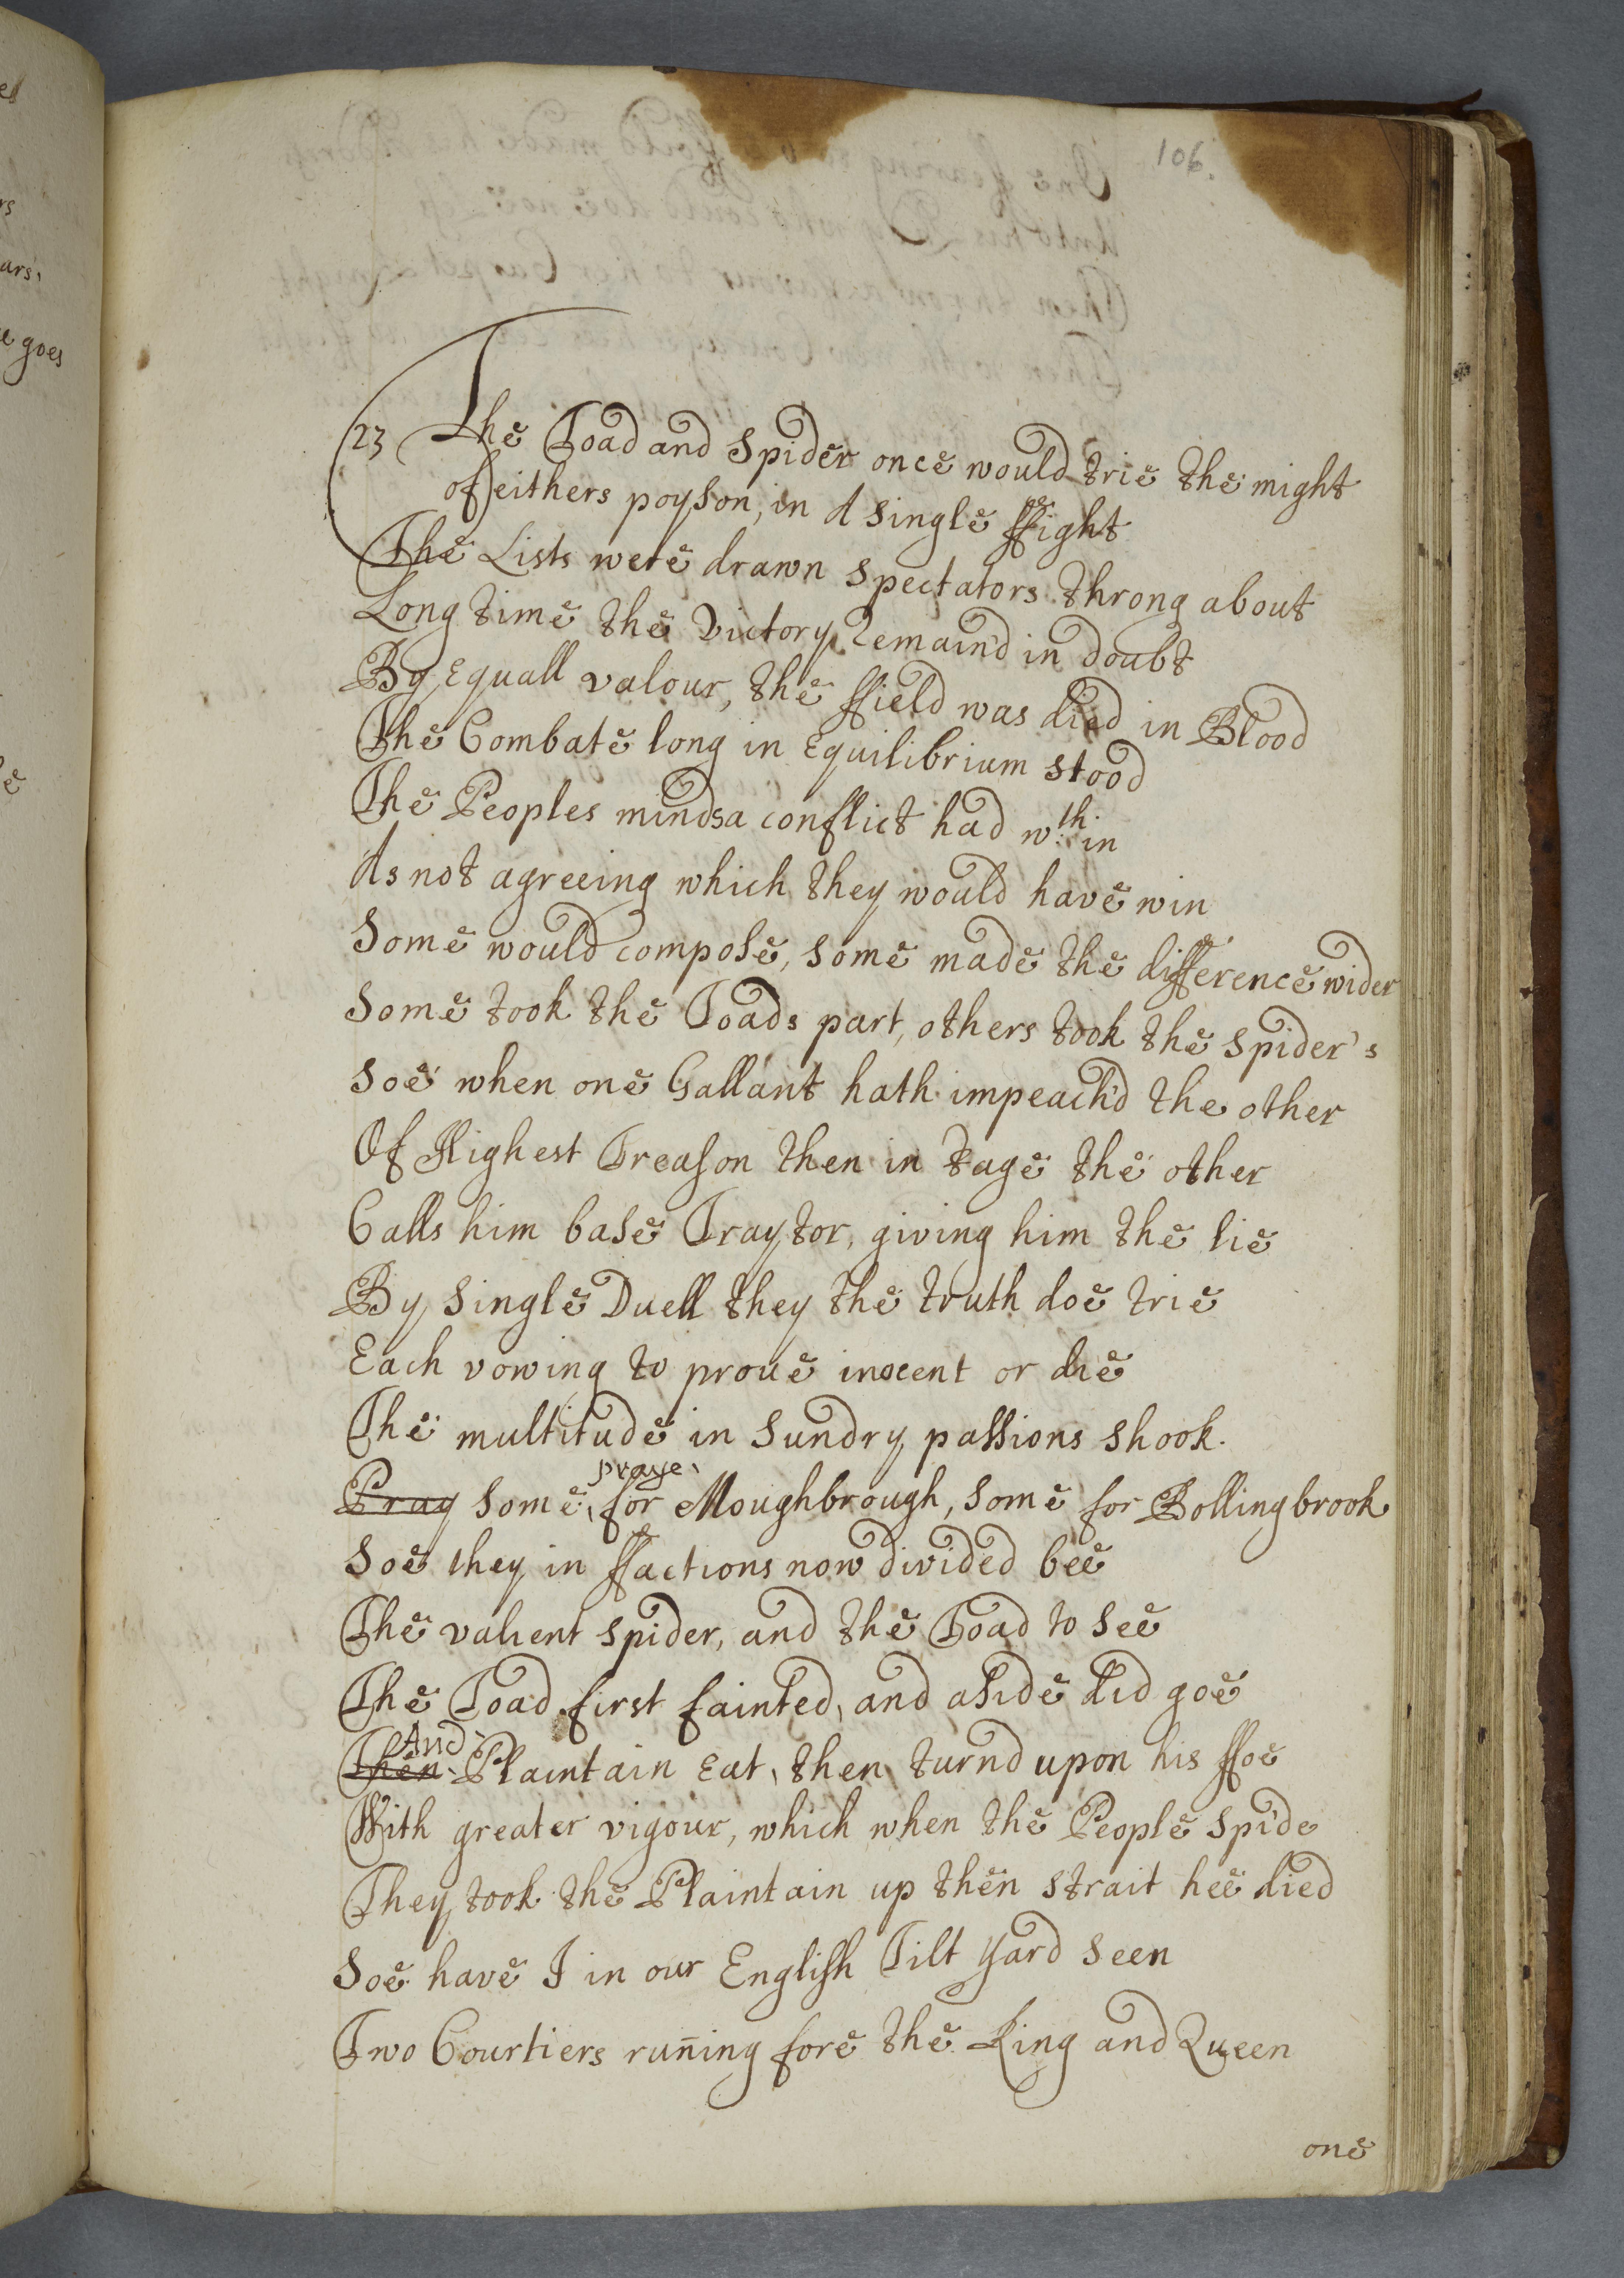 106.
23 The Toad and Spider once would trie the might
of eithers poyson, in A single ffight
The Lists were drawn Spectators throng about
Long time the Victory Remain'd in doubt
By Equall valour, the ffield was died in Blood
The Combate long in Equilibrium stood
The Peoples minds a conflict had wth.in
As not agreeing which they would have win
Some would compose, some made the difference wider
Some took the Toads part, others took the Spider's
Soe when one Gallant hath impeach'd the other
Of Highest Treason then in Rage the other
Calls him base Traytor, giving him the lie
By single Duell they the truth doe trie
Each vowing to proue inocent or die
The multitude in Sundry passions shook.
Pray Some praye for Moughbrough, Some for Bollingbrook
Soe they in ffactions now divided bee
The valient Spider, and the Toad to See
The Toad first fainted, and aside did goe
Then And Plaintain Eat, then turnd upon his ffoe
With greater vigour, which when the People Spi'de
They took the Plaintain up then strait hee died
Soe have I in our English Tilt Yard Seen
Two Courtiers runīng fore the King and Queen
one
goes